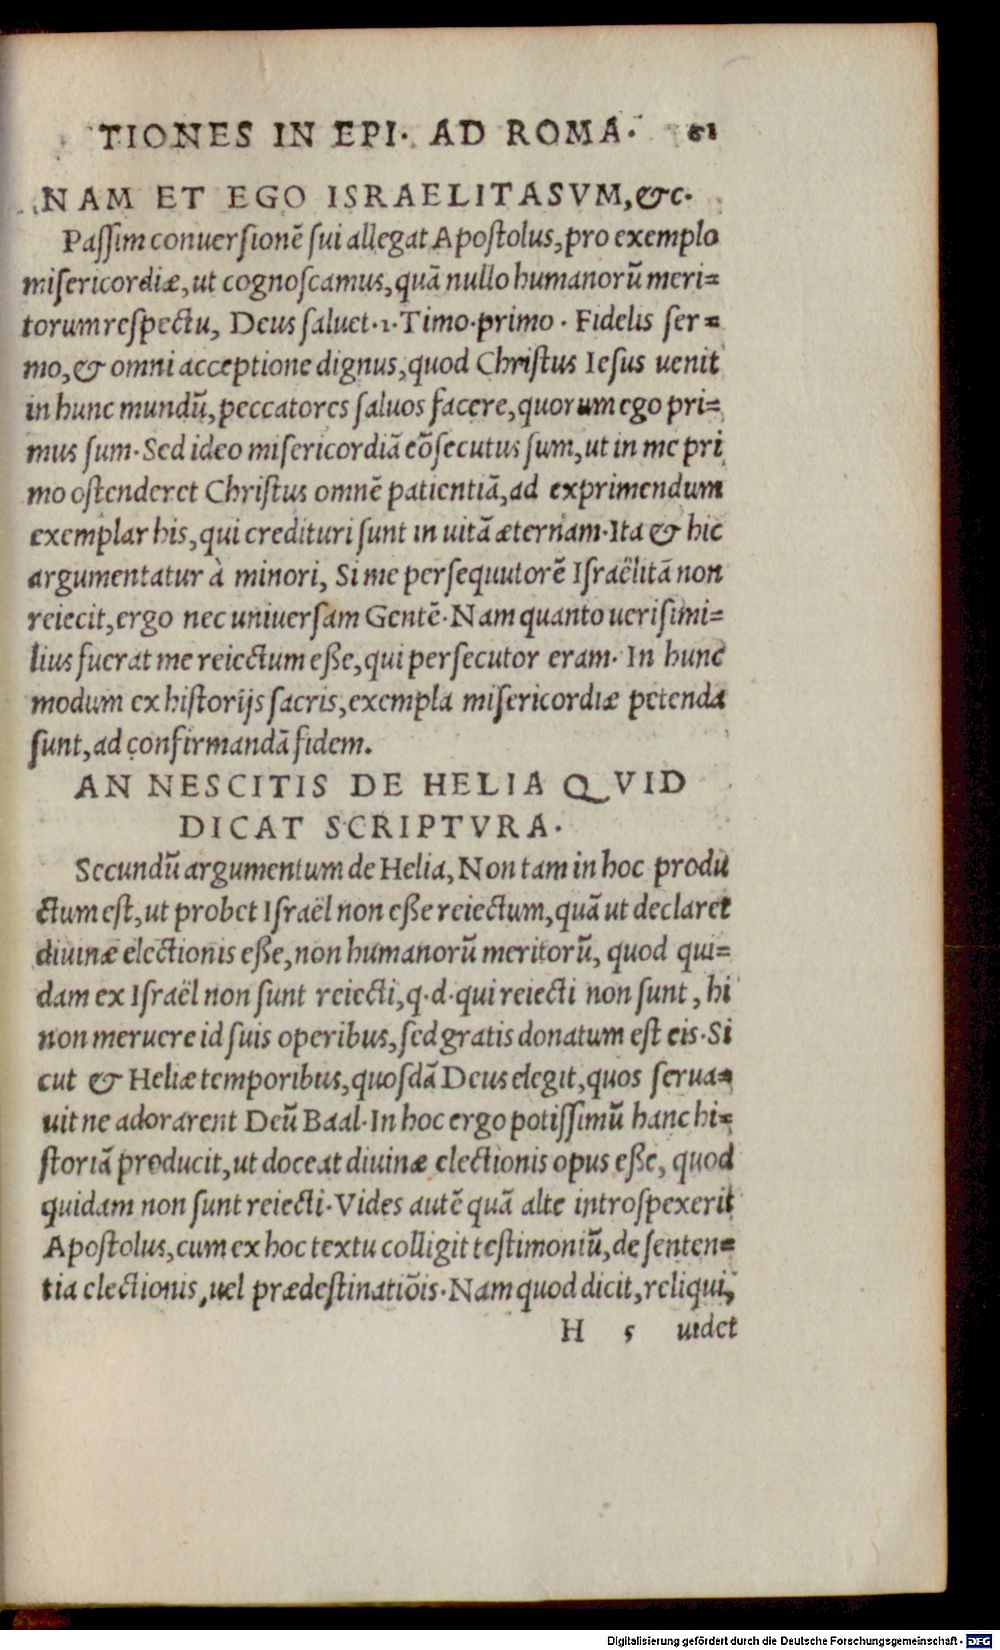 TIONES IN EPI. AD ROMA. 61
NAM ET EGO ISRAELITASVM, &c.
Paſſim conuerſionē ſui allegat Apoſtolus, pro exemplo
miſericordiæ, ut cognoſcamus, quā nullo humanorū meri=
torum reſpectu, Deus ſaluet. 1. Timo. primo. Fidelis ſer=
mo, & omni acceptione dignus, quod Chriſtus Ieſus uenit
in hunc mundū, peccatores ſaluos facere, quorum ego pri=
mus ſum. Sed ideo miſericordiā cōſecutus ſum, ut in me pri
mo oſtenderet Chriſtus omnē patientiā, ad exprimendum
exemplar his, qui credituri ſunt in uitā æternam. Ita & hic
argumentatur à minori, Si me perſequutorē Iſraëlitā non
reiecit, ergo nec uniuerſam Gentē. Nam quanto ueriſimi=
lius fuerat me reiectum eſſe, qui perſecutor eram. In hunc
modum ex hiſtorijs ſacris, exempla miſericordiæ petenda
ſunt, ad confirmandā fidem.
AN NESCITIS DE HELIA QVID
DICAT SCRIPTVRA.
Secundū argumentum de Helia, Non tam in hoc produ
ctum eſt, ut probet Iſraël non eſſe reiectum, quā ut declaret
diuinæ electionis eſſe, non humanorū meritorū, quod qui=
dam ex Iſraël non ſunt reiecti, q. d. qui reiecti non ſunt, hi
non meruere id ſuis operibus, ſed gratis donatum eſt eis. Si
cut & Heliæ temporibus, quoſdā Deus elegit, quos ſerua=
uit ne adorarent Deū Baal. In hoc ergo potiſſimū hanc hi=
ſtoriā producit, ut doceat diuinæ electionis opus eſſe, quod
quidam non ſunt reiecti. Vides autē quā alte introſpexerit
Apoſtolus, cum ex hoc textu colligit teſtimoniū, de ſenten=
tia electionis, uel prædeſtinatiōis. Nam quod dicit, reliqui,
H 5 uidet
Digitalisierung gefördert durch die Deutsche Forschungsgemeinschaft - DFG